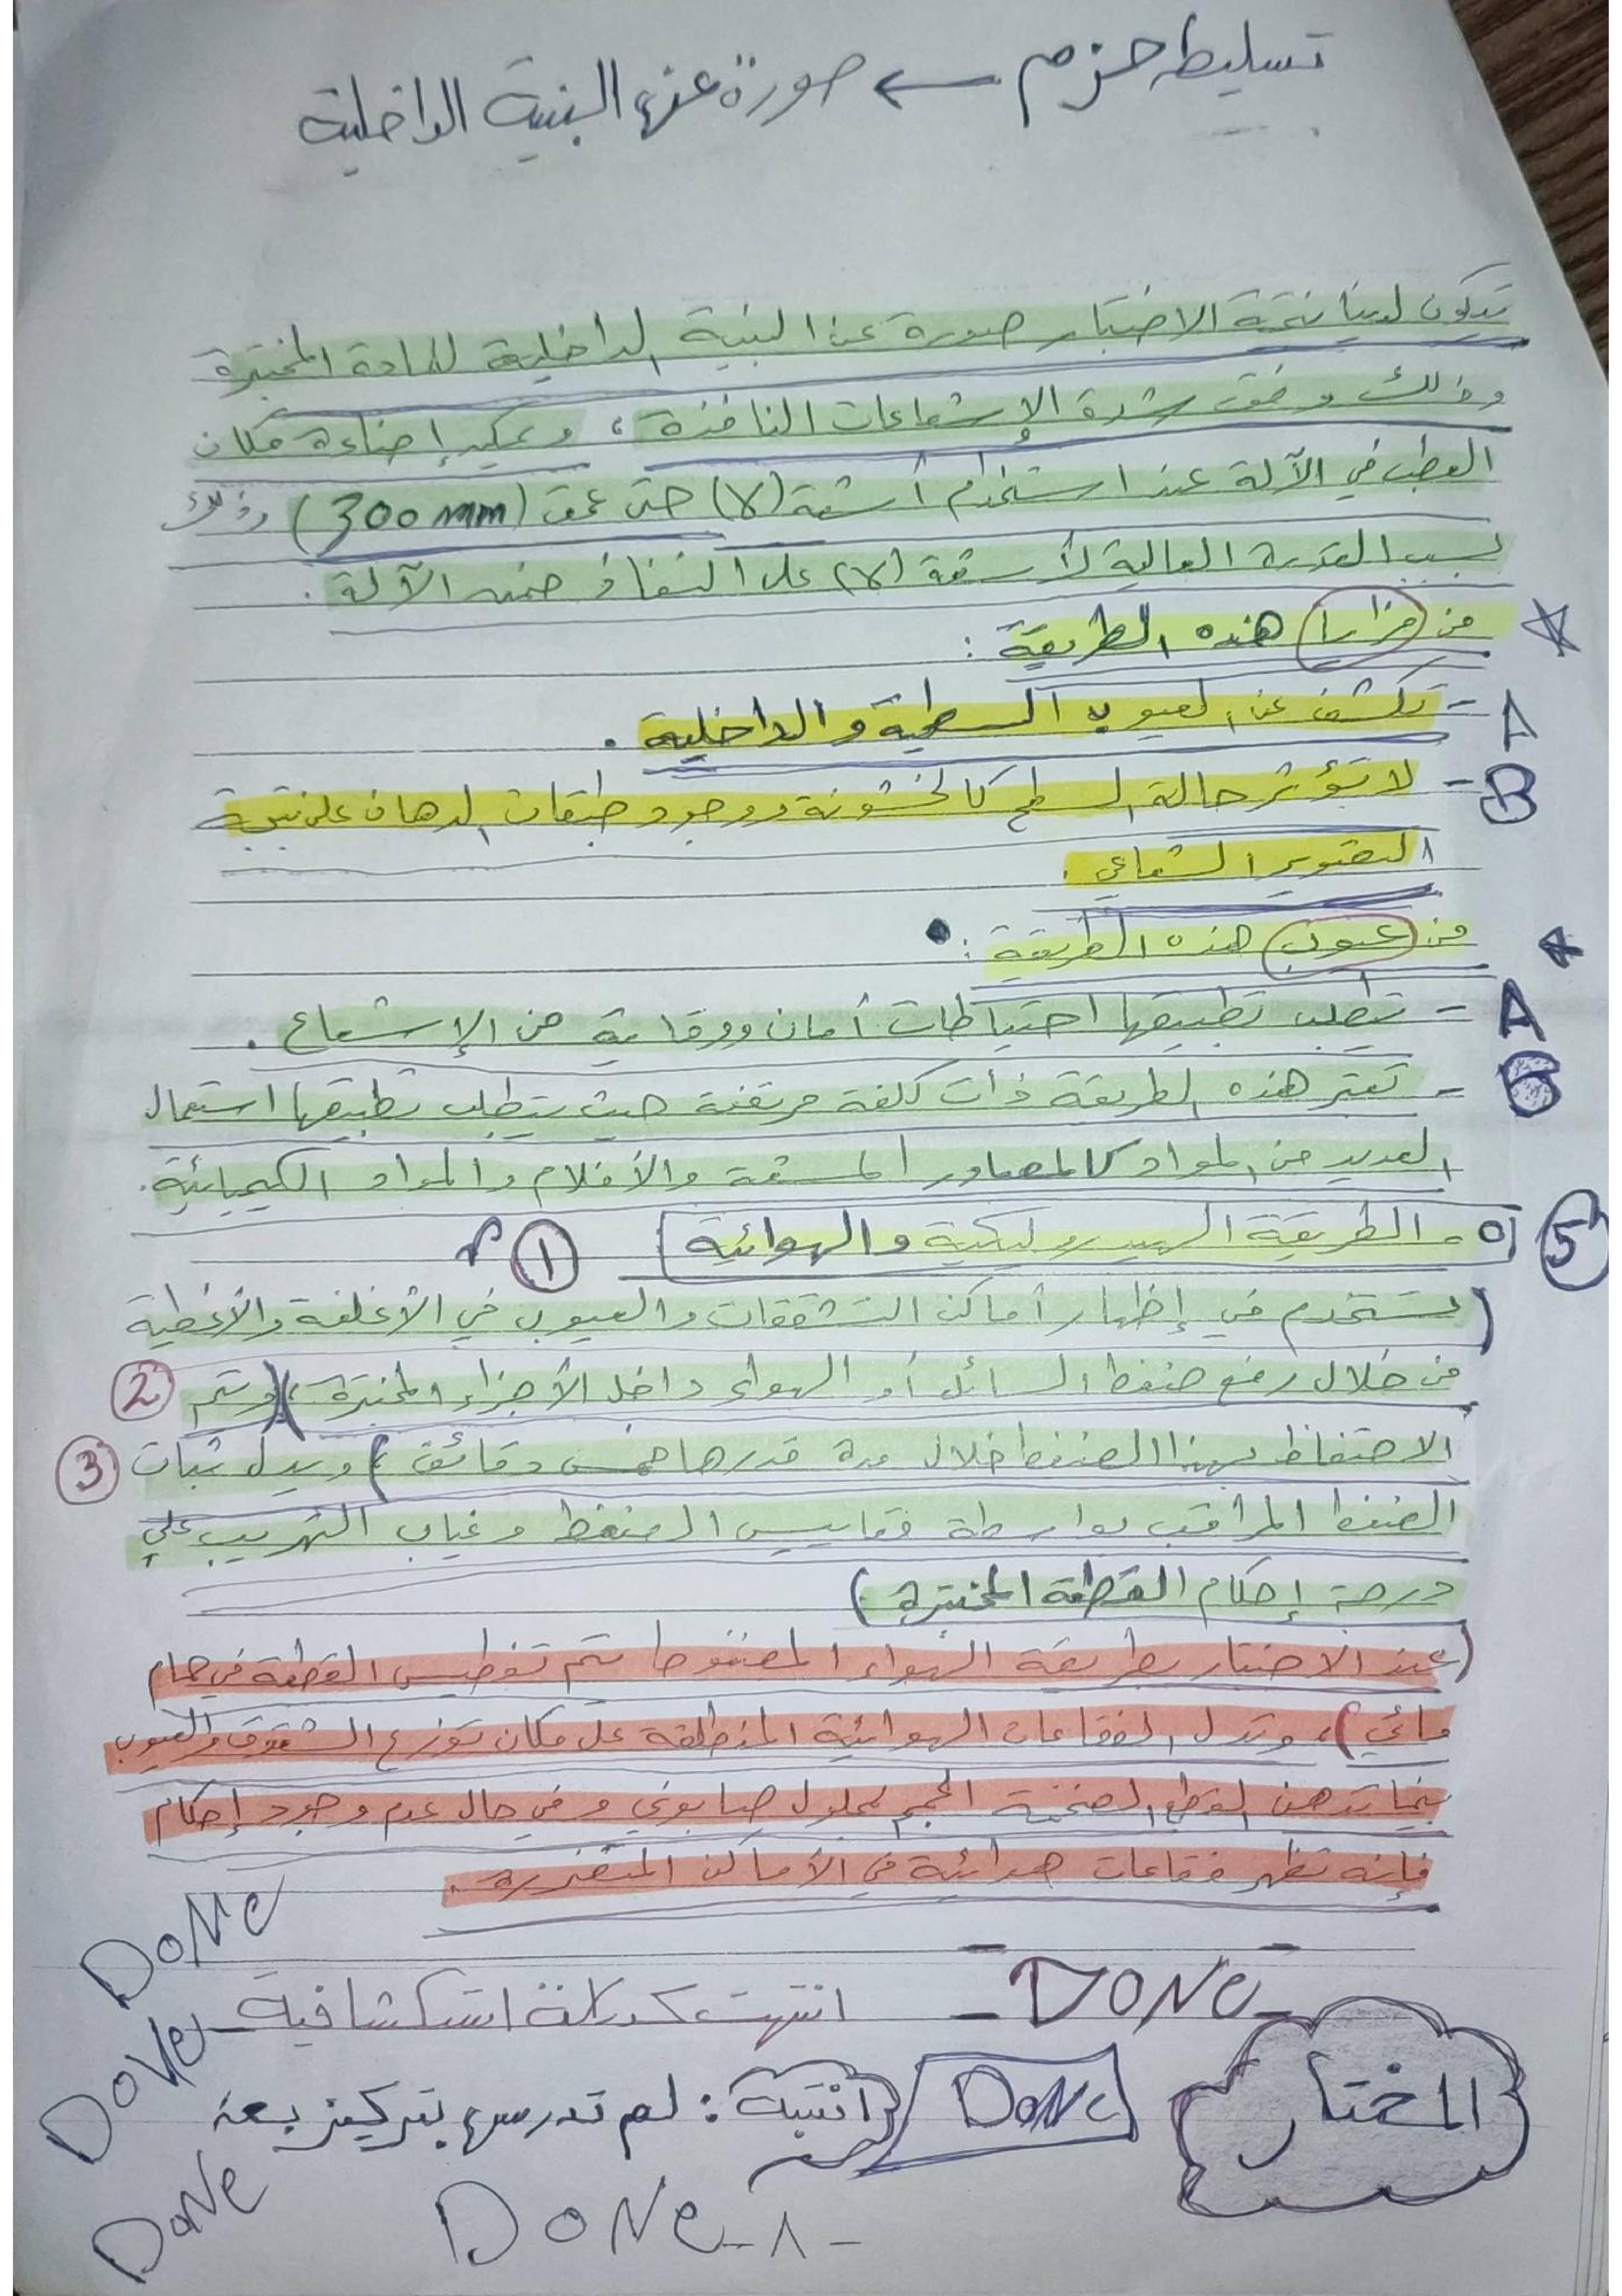 تسليط حزم ← صورة عن البنية الداخلية
تتكون لدينا نتيجة الاختبار صورة عن البنية الداخلية للمادة المختبرة
وذلك وفق شدة الإشعاعات النافذة، ويمكن إضاءة مكان
العطب في الآلة عند استخدام أشعة (γ) حتى عمق (300 mm) وذلك
بسبب القدرة العالية لأشعة (γ) على النفاذ ضمن الآلة.
من مزايا هذه الطريقة:
A - تكشف عن العيوب السطحية والداخلية.
B - لا تؤثر حالة السطح كالخشونة ووجود طبقات الدهان على نتيجة
التصوير الشعاعي.
من عيوب هذه الطريقة:
A - تتطلب تطبيقها احتياطات أمان ووقاية من الإشعاع.
B - تعتبر هذه الطريقة ذات كلفة مرتفعة حيث يتطلب تطبيقها استعمال
العديد من المواد كالمصادر المشعة والأفلام والمواد الكيميائية.
5 ٥ـ الطريقة الهيدروليكية والهوائية ①
(تستخدم في إظهار أماكن التشققات والعيوب في الأغلفة والأغطية
من خلال رفع ضغط السائل أو الهواء داخل الأجزاء المختبرة)، (ويتم ②
الاحتفاظ بهذا الضغط خلال مدة قدرها خمس دقائق) ويدل ثبات ③
الضغط المراقب بواسطة مقاييس الضغط وغياب التهريب على
درجة إحكام القطعة المختبرة)
(عند الاختبار بطريقة الهواء المضغوط يتم تغطيس القطعة في حمام
مائي)، وتدل الفقاعات الهوائية المنطلقة على مكان توزع الشقوق والعيوب
بينما تدهن القطع الضخمة الحجم بمحلول صابوني وفي حال عدم وجود إحكام
فإنه تظهر فقاعات هوائية في الأماكن المتضررة.
DONe
- DONe - انتهت كدراسة استكشافية -
DONe
المختار DONe انتبه: لم تدرس بتركيز بعد
DONe
DONe - ٨ -